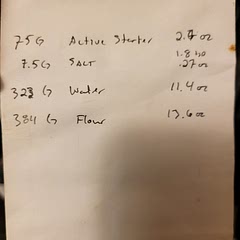 75 G Active Starter 2.7 oz
7.5 G SALT .27 oz
323 G Water 11.4 oz
384 G Flour 13.6 oz